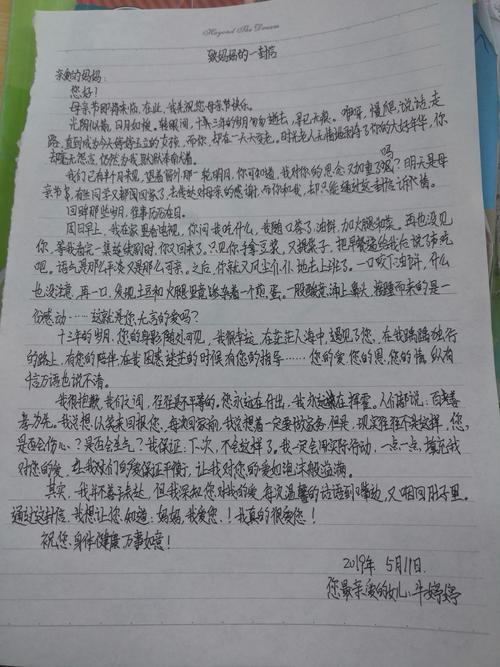 Beyond The Dream
致妈妈的一封信
亲爱的妈妈:
您好!
母亲节即将来临,在此,我先祝您母亲节快乐。
光阴似箭,日月如梭。转眼间,十来三年的时光匆匆逝去,牙已天教。咿呀,慢爬说话,走
路,直到成为今天婷婷玉立的女孩,而你,却在一天天变老。时光老人无情地剥夺了你的大好年华,你
去毫无怨言,仍然为我默默奉献着。
我们已有半个月未见,望着窗外那一轮明月,你可知道,我对你的思念又加重了吗?明天是母
亲节,有些同学又都回家了,去传达对母亲的感谢,而你和我,却只能通过这封信诉衷情。
回眸那些时月,往事历历在目。
周日早上,我在家里看电视,你问我吃什么,我随口答了:油饼,加火腿和菜。再也没见
你,等我看完一集连续剧时,你又回来了。只见你手拿豆浆,又提袋子,把早餐递给我后说了句吃
吧。语气是那么平淡又是那么可亲。之后,你就又风尘仆仆地去上班了。一口咬下油饼,什么
也没注意,再一口,发现土豆和火腿里竟然夹杂着一个煎蛋。一股酸意涌上鼻头,接踵而来的是一
份感动……这就是您无言的爱吗?
十三年的岁月,您的身影随处可见,我很幸运,在茫茫人海中,遇见了您,在我踽踽独行
的路上,有您的陪伴,在我困惑迷茫的时候有您的指导……您的爱,您的恩,您的情,纵有
千言万语也说不清。
我很抱歉,我们之间,往往是不平等的。您永远在付出,我永远在挥霍。人们都说,百善孝
为先。我总想以关来回报您,每次回家前,我总想着一定要做家务,但是,现实往往不是这样,您,
是否会伤心?是否会生气?我保证,下次,不会这样了。我一定会用实际行动,一点一点,填充我
对您的爱,让我对们的爱保证平衡,让我对您的爱如泡沫般溢满。
其实,我并不善于表达,但我深知您对我的爱,每次温馨的话语到嘴边,又咽回肚子里。
通过这封信,我想让您知道:妈妈,我爱您,!我真的很爱您!
祝您:身体健康,万事如意!
2019年 5月11日.
您最亲爱的女儿:牛婷婷